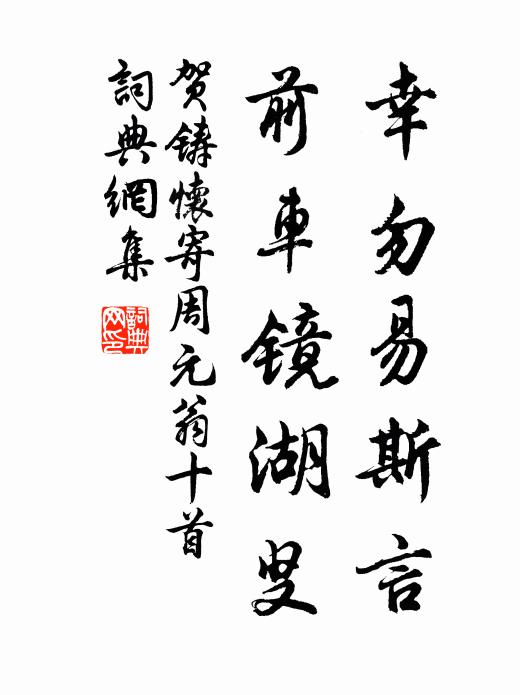 幸勿易斯言
前車镜湖叟
贺鑄懷寄周元翁十首
詞典網集
詞典网印